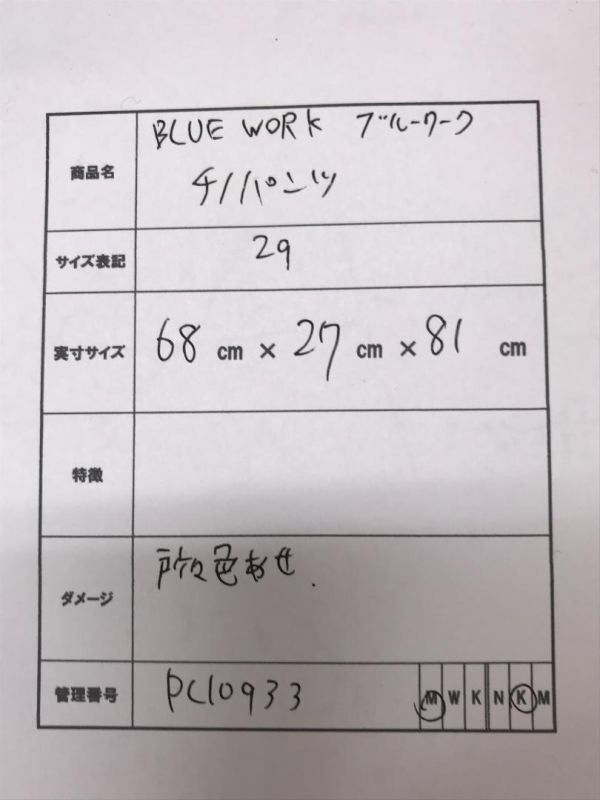 商品名 BLUE WORK ブルーワーク
チノパンツ
サイズ表記 29
実寸サイズ 68 cm × 27 cm × 81 cm
特徴
ダメージ 所々色あせ.
管理番号 PC10933 M W K N K M